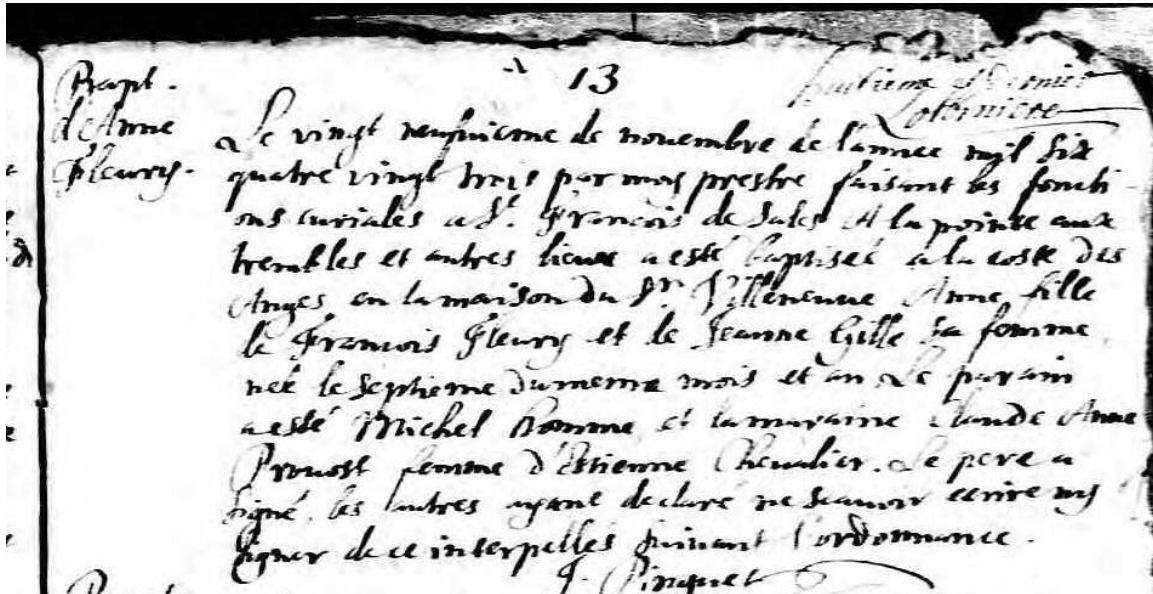 13
huitieme et dernier
Lotbiniere
Bapt.
d'Anne
Fleury.
Le vingt neufuieme de nouembre de l'annee mil six
quatre vingt trois par moy prestre faisant les foncti
ons curiales a St. François de Sales A la pointe aux
trembles et autres lieux a esté baptiseé a la coste des
Anges en la maison du Sr. Villeneuue Anne fille
de François Fleury et de Jeanne Gille sa femme
neé le septieme du meme mois et an Le parain
a esté Michel Homme et la maraine Claude Anne
Prouost femme d'Estienne Cheualier. Le pere a
signé, les autres ayant declaré ne scauoir ecrire ny
signer de ce interpellés suiuant l'ordonnance.
J. Pinguet